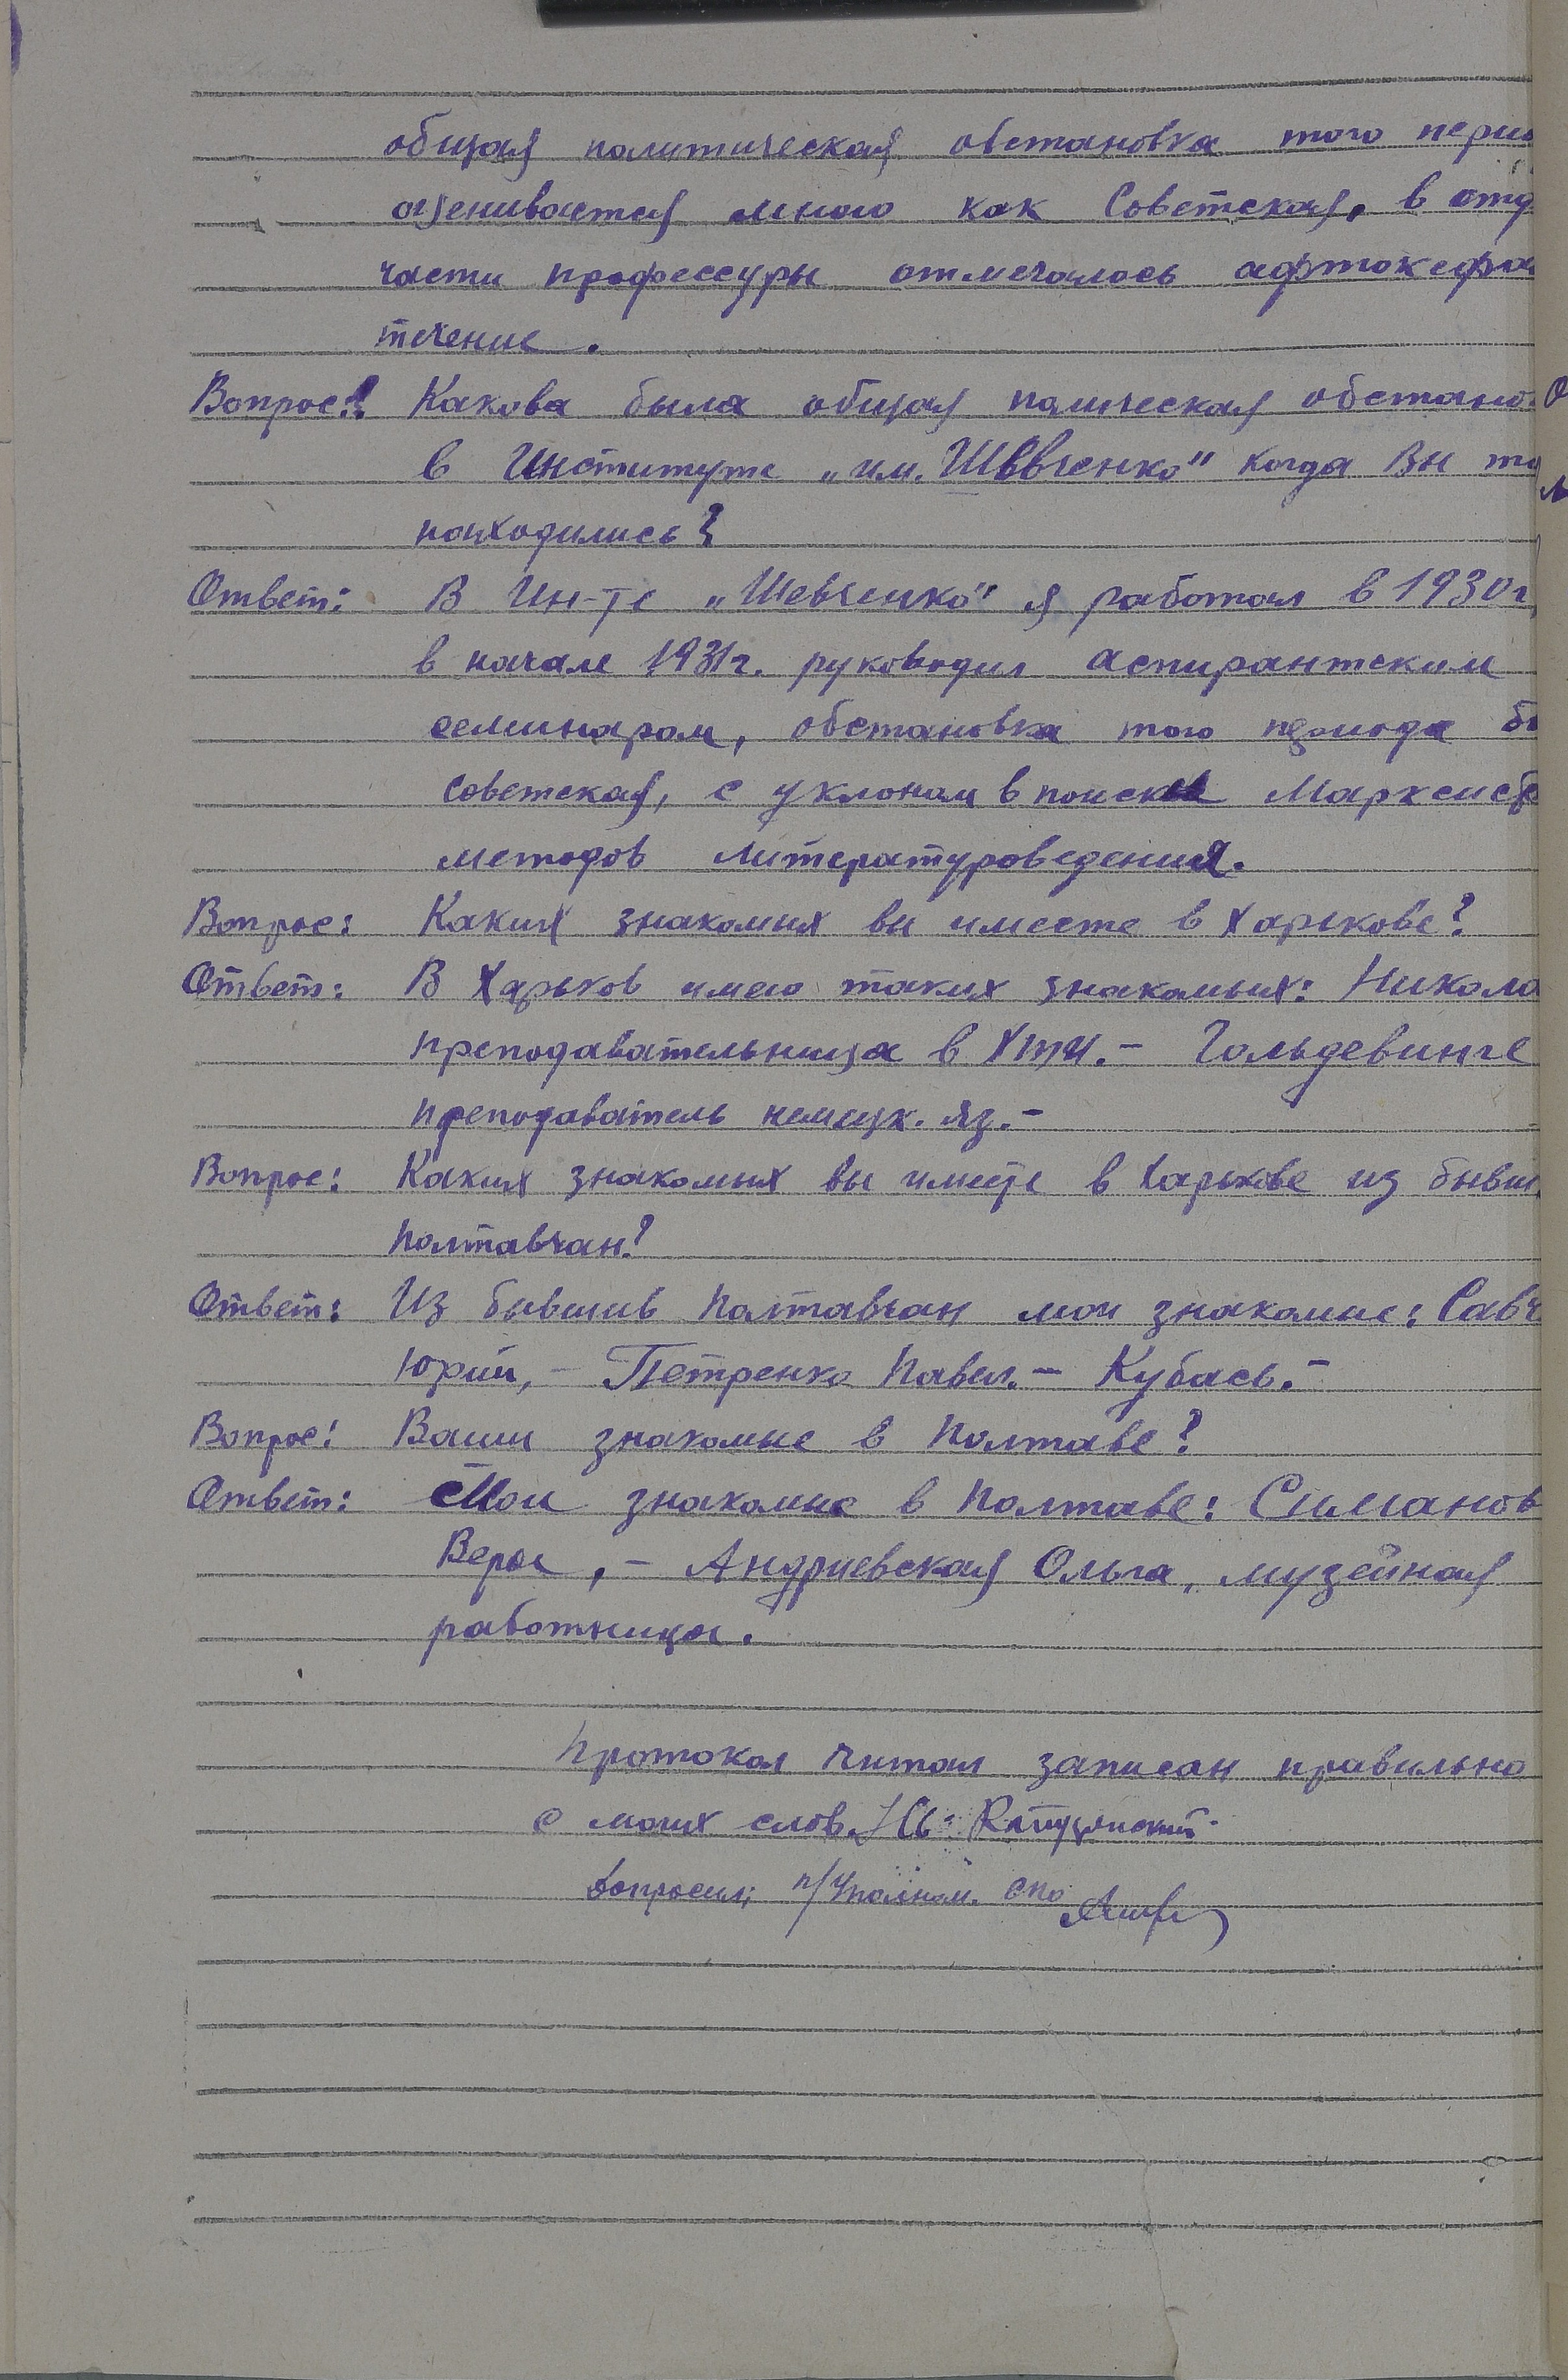 общая политическая обстановка того перио
оценивается мною как Советская, в отд
части профессуры отмечалось афтокефа
течение.
Вопрос: Какова была общая полическая обстано
в Институте „им. Шевченко" когда Вы та
находились?
Ответ: В Ин-те „Шевченко" я работал в 1930г,
в начале 1931г. руководил аспирантским
семинаром, обстановка того периода бы
Советская, с уклоном в поиски Марксист
методов литературоведения.
Вопрос: Каких знакомых вы имеете в Харькове?
Ответ: В Харьков имею таких знакомых: Никола
преподавательница в ХТИ. – Гольдевинге
преподаватель немецк. яз. –
Вопрос: Каких знакомых вы имете в Харькове из бывш
полтавчан?
Ответ: Из бывшив полтавчан мои знакомые: Савч
Юрий, – Петренко Павел. – Кубась. –
Вопрос: Ваши знакомые в Полтаве?
Ответ: Мои знакомые в Полтаве: Симанов
Вера, – Андриевская Ольга, музейная
работница.
Протокол читал записан правильно
с моих слов.
Допросил: п/Уполном. СПО